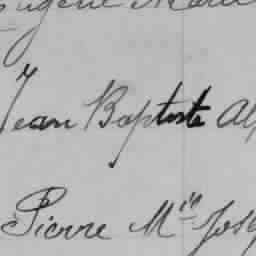 Eugène Marie
Jean Baptiste Al
Pierre M^ie Jos